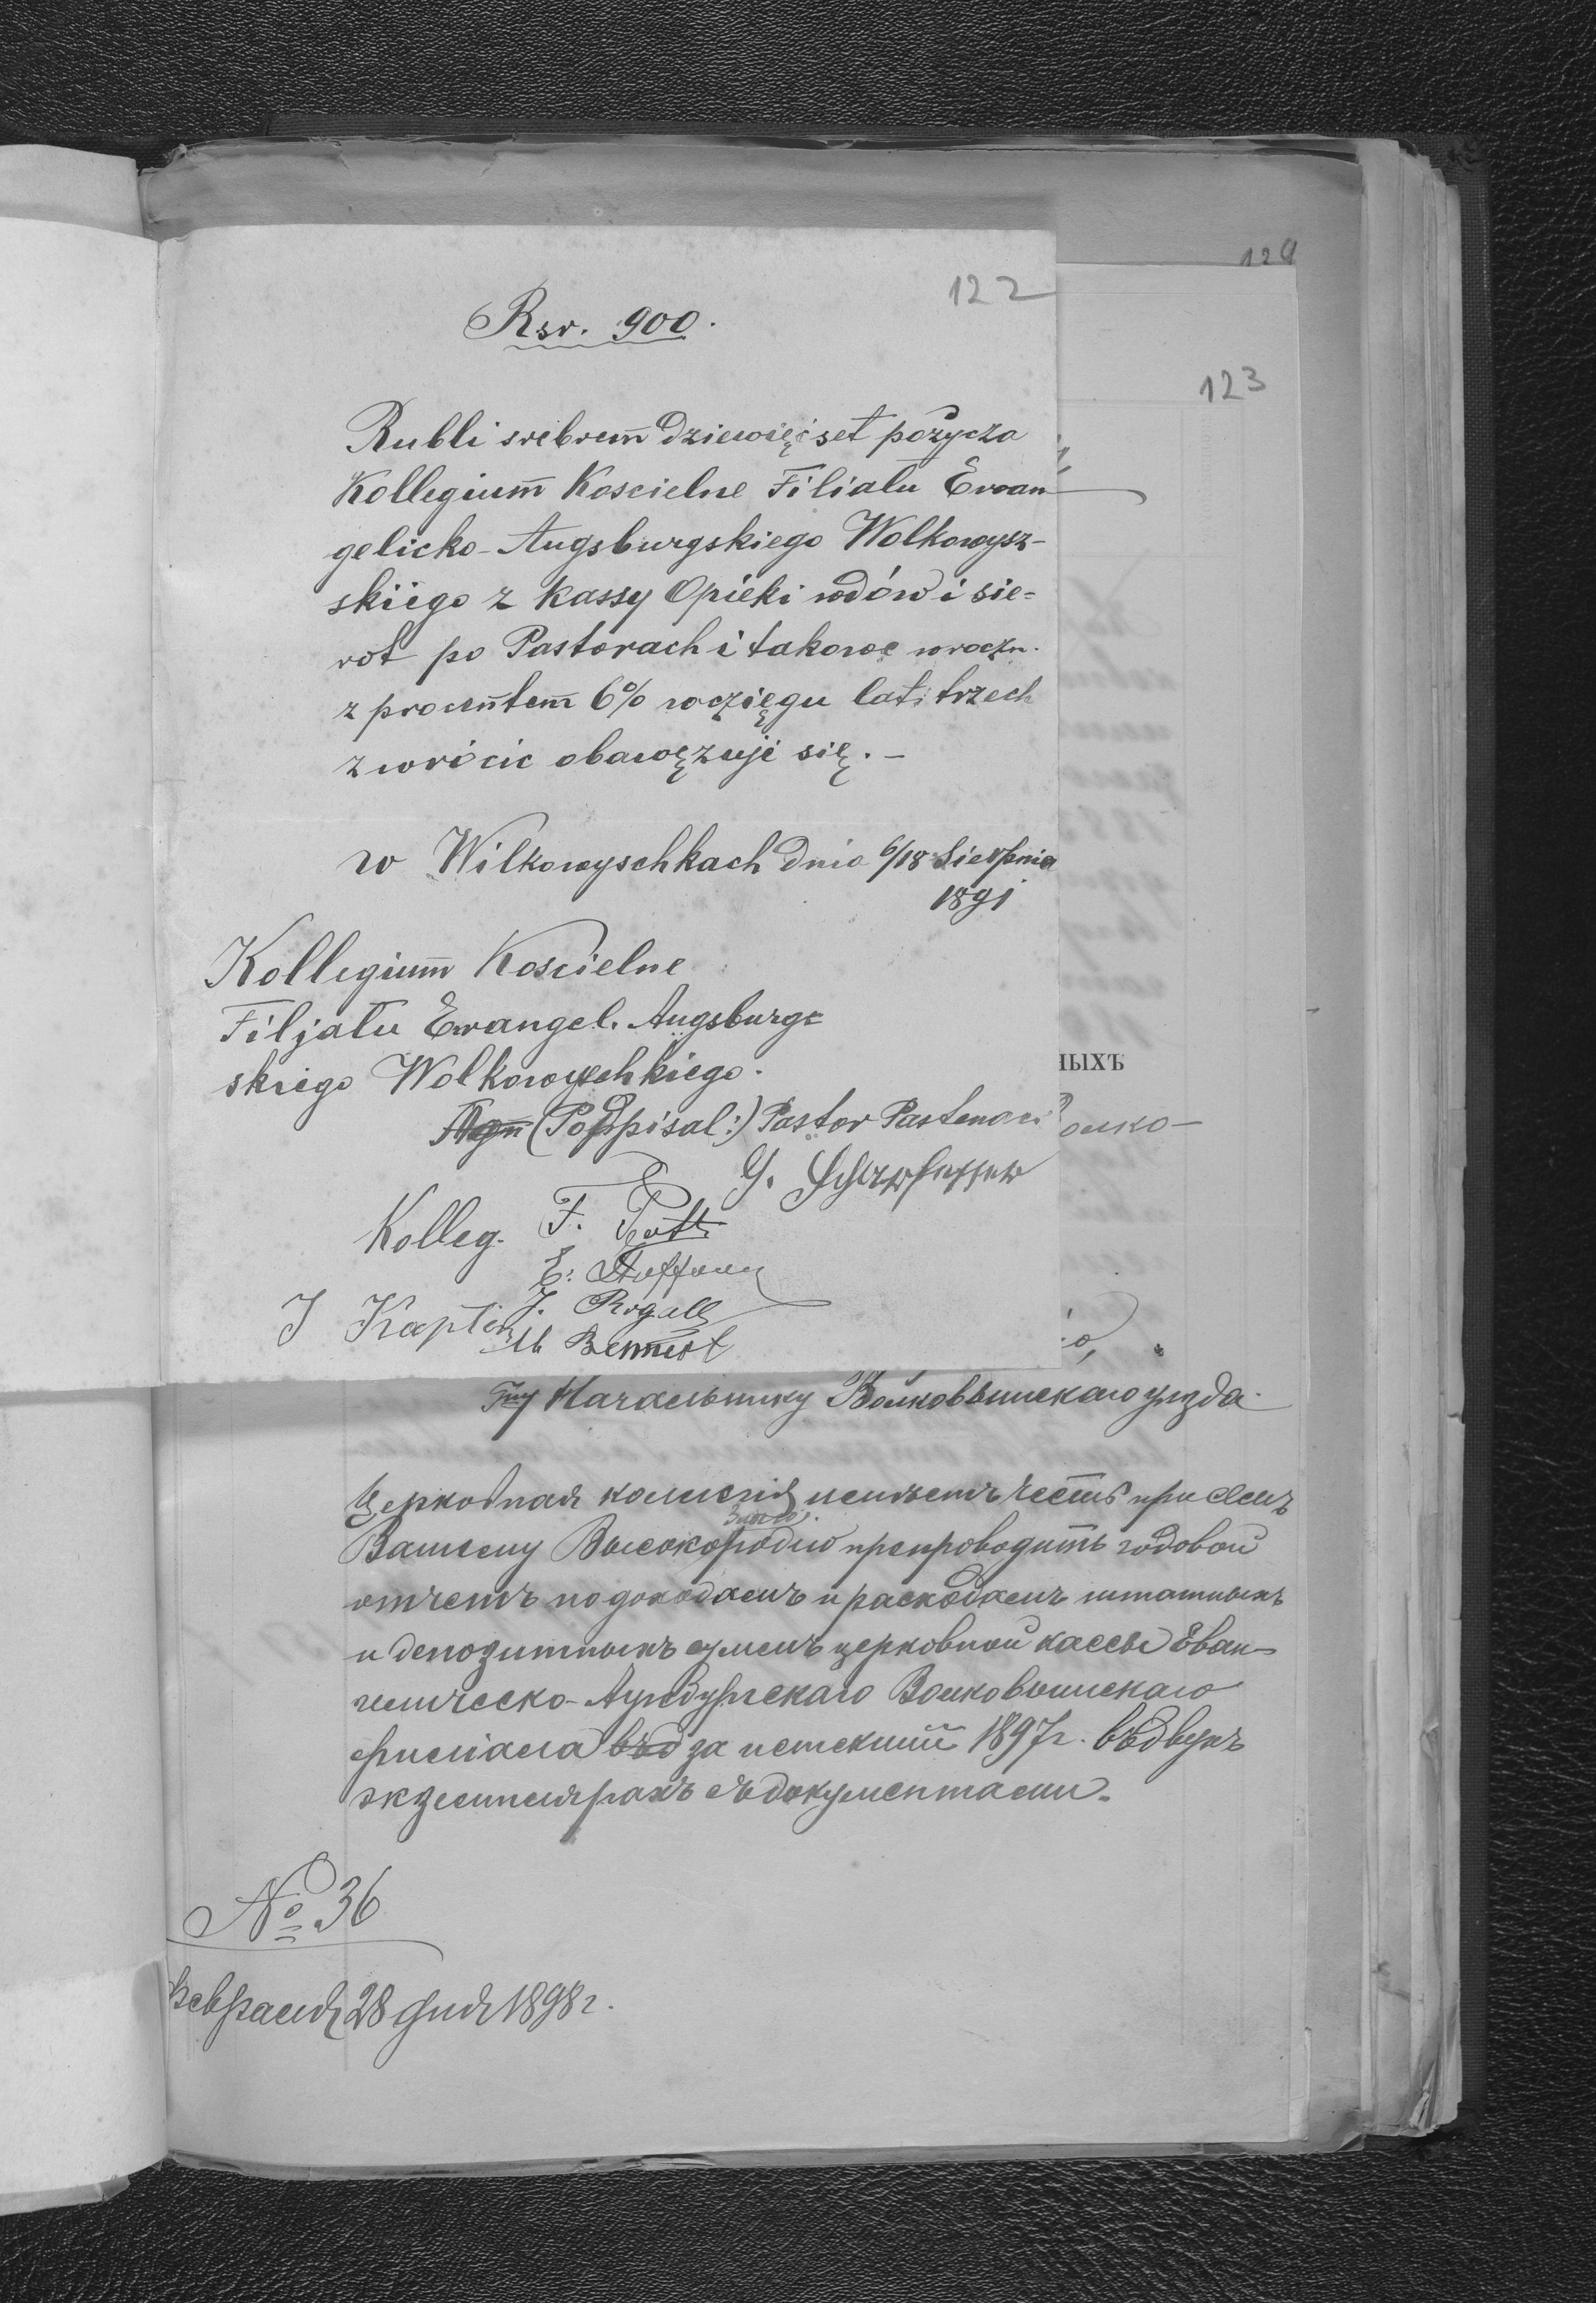 124
122
123
Rsr. 900.
Rubli srebrem dziewięć set pożycza
Kollegium Koscielne Filialu Ewan
gelicko-Augsburgskiego Wolkowysz-
skiego z Kassy Opieki wdów i sie=
rot po Pastorach i takowe wroczn.
z procentem 6% wczięgu lat trzech
zwrócic obowęzuje się. –
w Wilkowyschkach dnia 6/18 Sierpnia
1891
Kollegium Koscielne
Filjału Ewangel. Augsburg=
skiego Wolkowyschkiego.
(Podpisal:) Pastor Pastenaci
Kolleg. F. Patt
E. Hoffman
J. Rogall
J Kaptein
M Bennert
ныхъ
Гну Начальнику Волковышскаго уезда
Церковная коллегія имѣетъ честь при семъ
Вашему Высокородію препроводить годовой
отчетъ по доходамъ и расходамъ штатныхъ
и депозитныхъ суммъ церковной кассы Еван-
гелическо-Аугсбургскаго Волковышскаго
филіала въ за истекшій 1897 г. въ двухъ
экземплярахъ съ документами.
№ 36
Февраля 28 дня 1898 г.